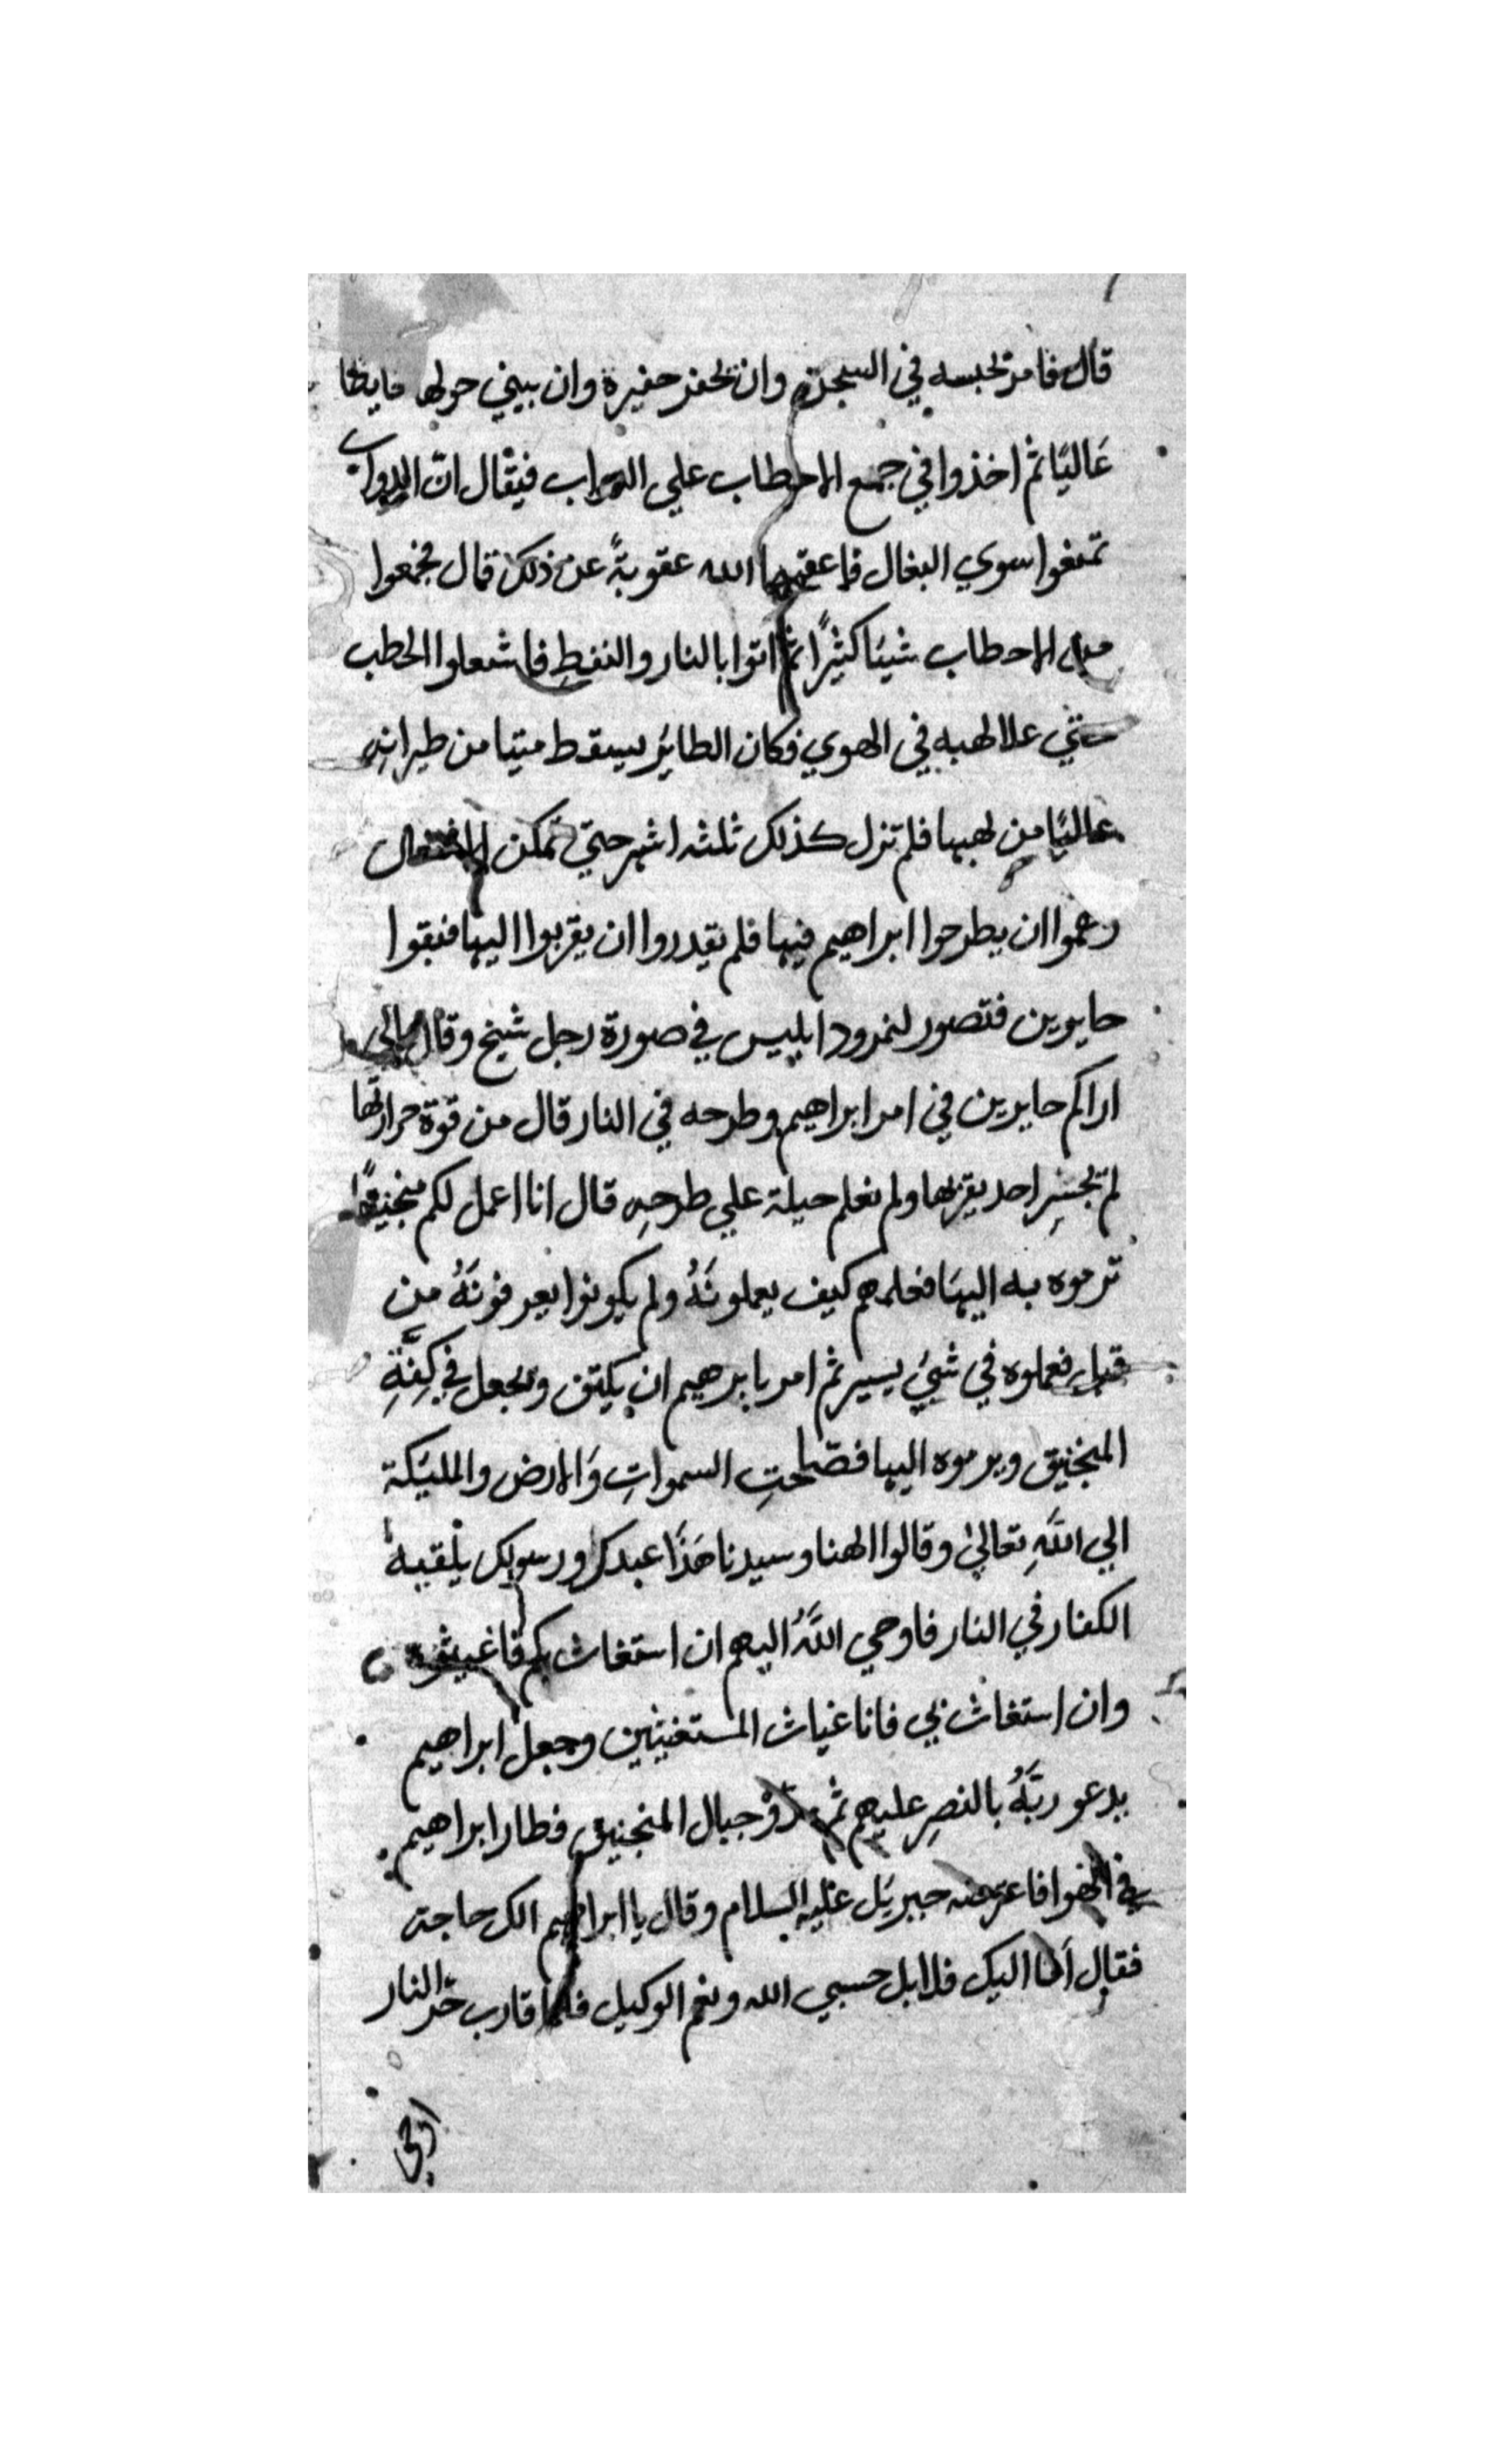 قال فامر بحبسه في السجن وان تحفر حفيرة وان يبني حولها حايطا
عَاليًا ثم اخذوا في جمع الاحطاب علي الدواب فيقال انّ الدواب
تمنعوا سوي البغال فاعقمها الله عقوبةً عن ذلك قال فجمعوا
من الاحطاب شيئا كثيرًا ثم اتوا بالنار والنفطِ فاشعلوا الحطب
حتي علا لهبه في الهوي فكان الطاير يسقط ميتا من طيرانِه
عاليًا من لهبها فلم تزل كذلك ثلثه اشهر حتي تمكن الاشتعال
زعموا ان يطرحوا ابراهيم فيها فلم يقدروا ان يقربوا اليها فبقوا
حايرين فتصور لنمرود ابليس في صورة رجل شيخ وقال مالي
اراكم حايرين في امر ابراهيم وطرحه في النار قال من قوة حرارتها
لم يجسِر احد يقربها ولم نعلم حيلة علي طرحِه قال انا اعمل لكم منجنيقًا
ترموه به اليهَا فعلمهم كيف يعملونَهُ ولم يكونوا يعرفونَهُ من
قبل فعملوه في شيء يسير ثم امر بابرهيم ان يكتف ويجعل في كِفّةِ
المنجنيق ويرموه اليها فصّاحتِ السمواتِ وَالارض والمليكة
الي اللَّهِ تعاليٰ وقالوا الهنا وسيدنا هَذَا عبدك ورسولك يلْقيه
الكفار في النار فاوحي اللَّهُ اليهم ان استغاث بكم فاغيثوه
وان استغاث بي فانا غياث المستغيثين وجعل ابراهيم
يدعو ربَّهُ بالنصرِ عليهم ثم حبال المنجنيق فطار ابراهيم
في الهوا فاعترضه جبريَل عليه السلام وقال يا ابراهيم الك حاجة
فقال أمّا اليك فلا بل حسبي الله ونعم الوكيل فلما قارب حَرّ النار